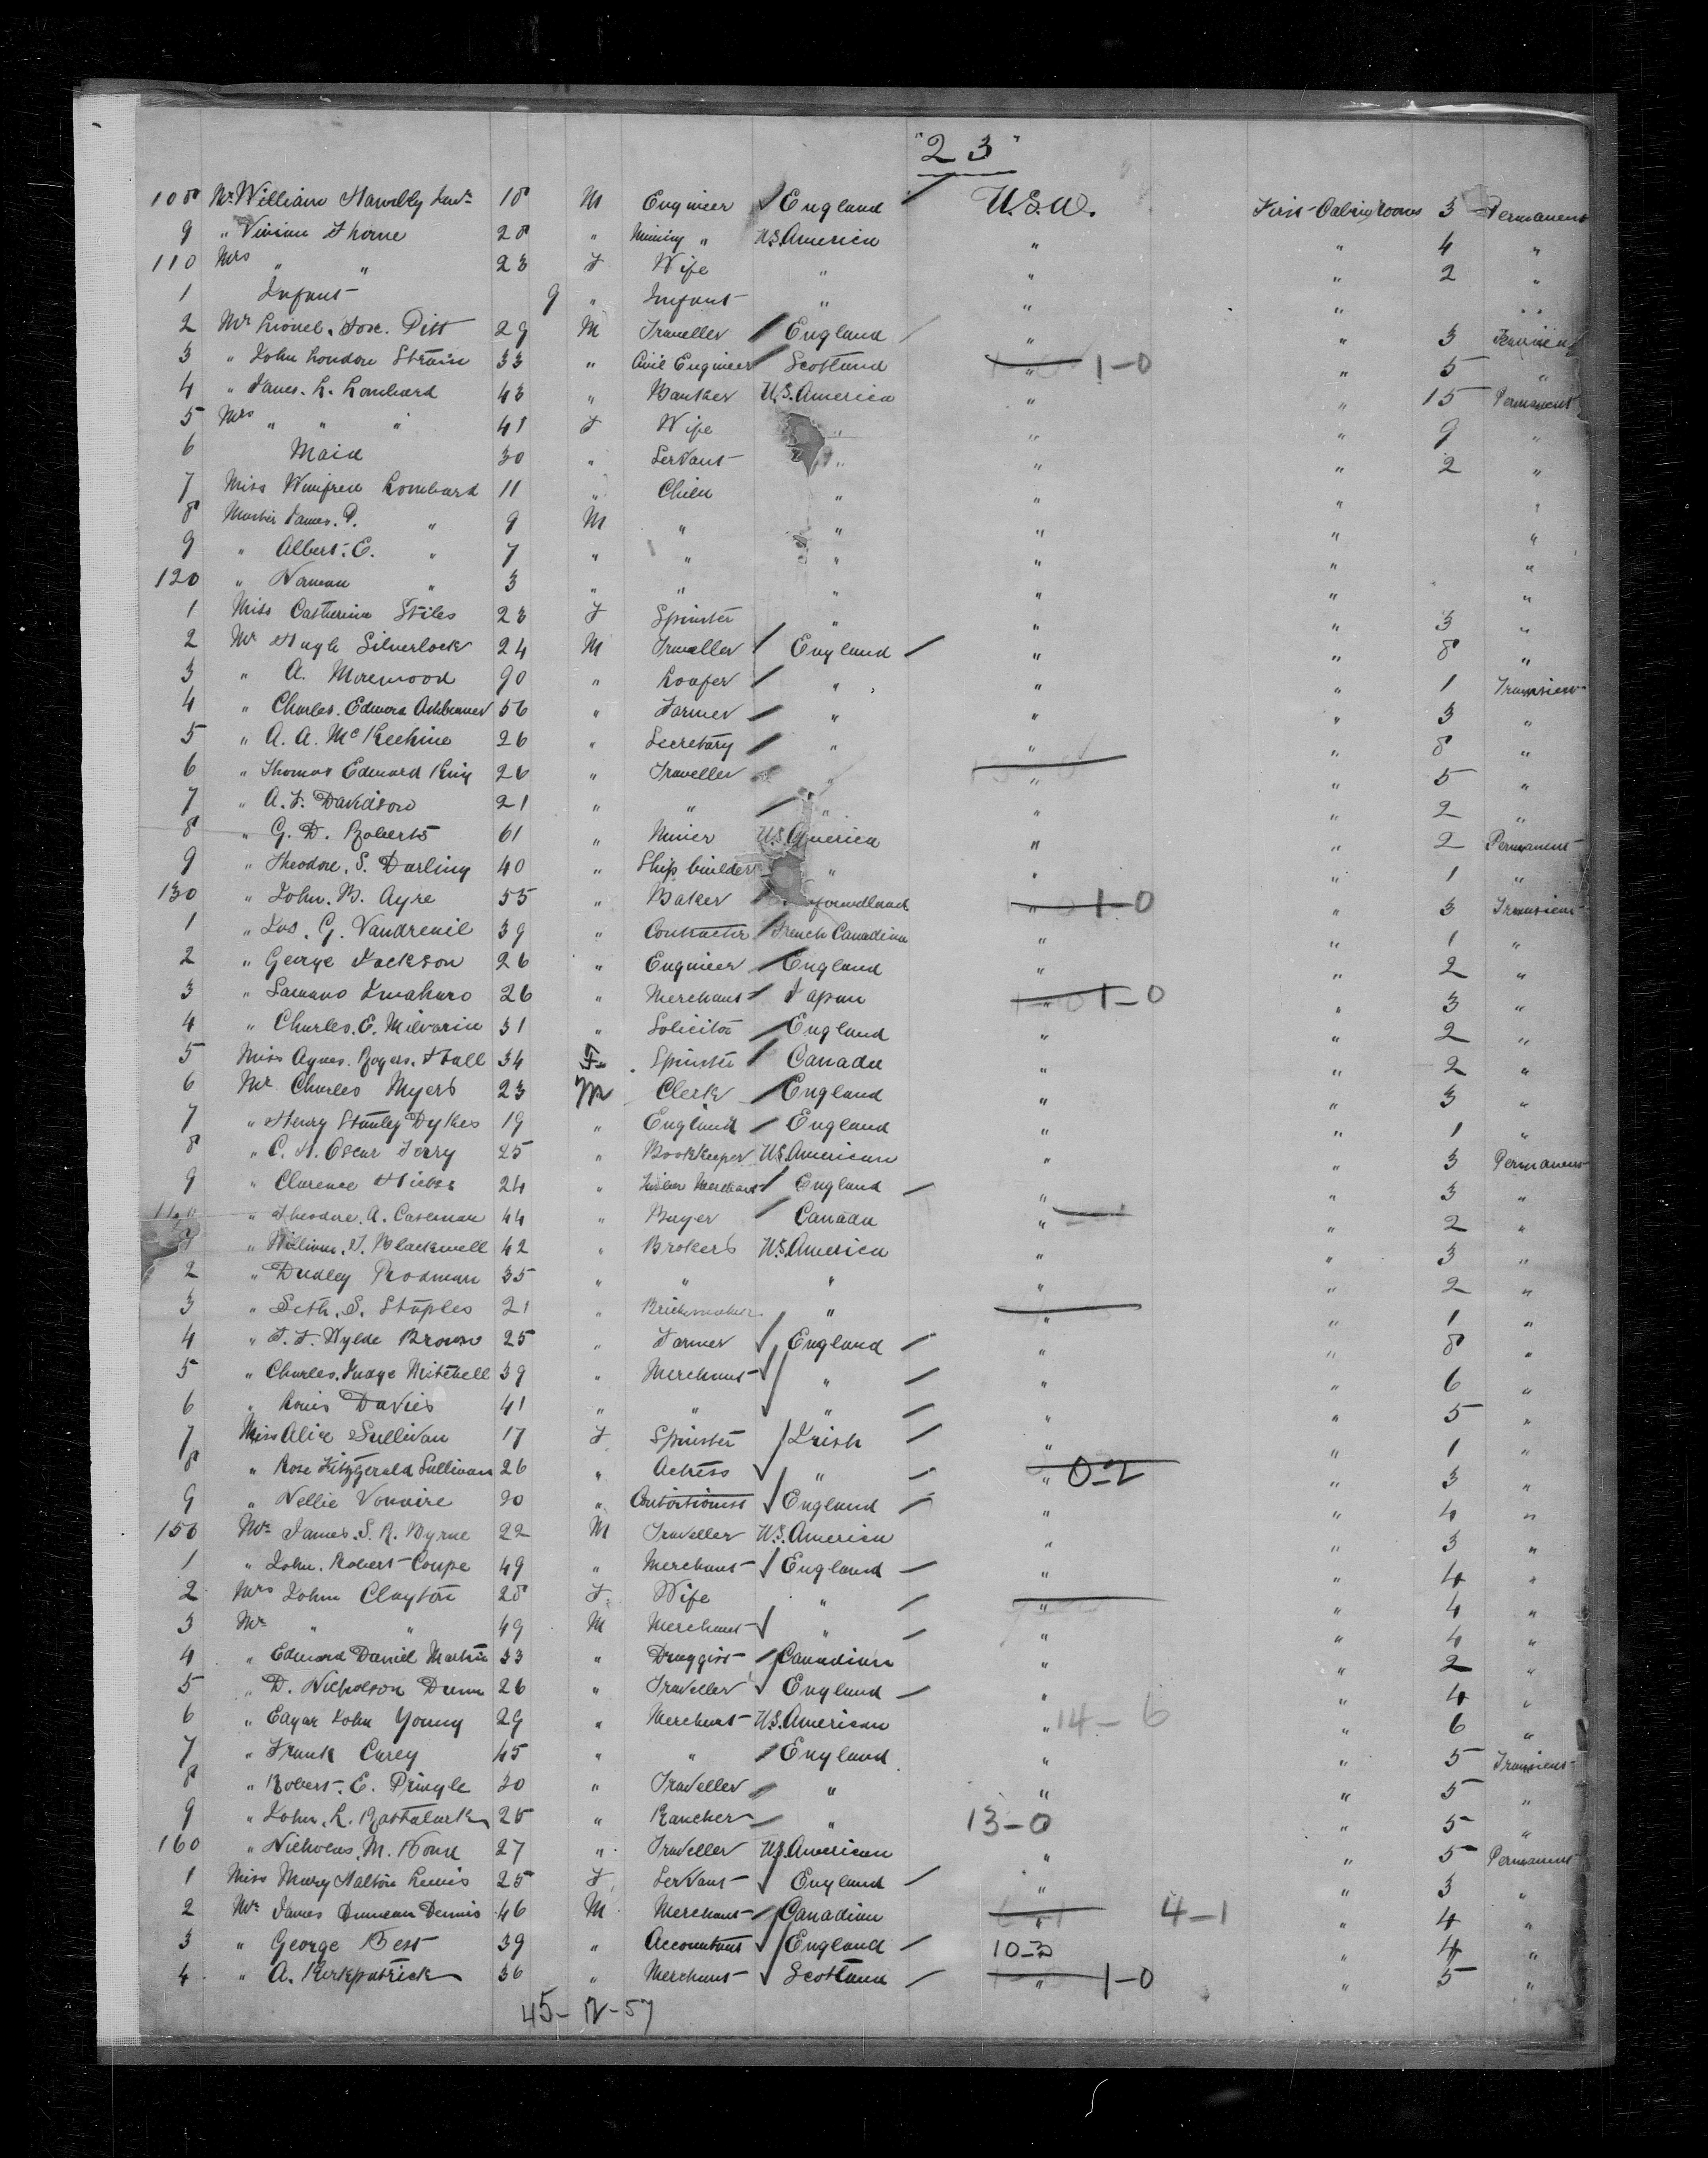 "23"
108 Mr William Hambly Junr 18 M Engineer England U.S.A. First Cabin Rooms 3 Permanent
9 " Vivian Thorne 28 " Mining " U.S. America " " 4 "
110 Mrs " " 23 F Wife " " " 2 "
1 Infant 9 " Infant " " " "
2 Mr Lionel. Fox. Pitt 29 M Traveller England " " 3
3 " John London Strain 33 " Civil Engineer Scotland " 1-0 " 5 "
4 " James. L. Lombard 43 " Banker U.S. America " " 15 Permanent
5 Mrs " " " 41 F Wife " " " 9 "
6 Maid 30 " Servant " " " 2 "
7 Miss Winifred Lombard 11 " Child " " " "
8 Master James. P. " 9 M " " " " "
9 " Albert. E. " 7 " " " " " "
120 " Norman " 3 " " " " " "
1 Miss Catherine Stiles 23 F Spinster " " " 3 "
2 Mr Hugh Silverlock 24 M Traveller England " " 8 "
3 " A. Morewood 90 " Loafer " " " 1 Transient
4 " Charles. Edward 56 " Farmer " " " 3 "
5 " A. A. McKechine 26 " Secretary " " " 8 "
6 " Thomas Edward King 26 " Traveller " " " 5 "
7 " A. F. Davidson 21 " " " " " 2 "
8 " G. D. Roberts 61 " Miner U.S. America " " 2 Permanent
9 " Theodore. S. Darling 40 " Ship builder " " " 1 "
130 " John. B. Ayre 55 " Baker " 1-0 " 3 Transient
1 " Jos. G. Vandreuil 39 " Contractor French Canadian " " 1 "
2 " George Jackson 26 " Engineer England " " 2 "
3 " 26 " Merchant Japan " 1-0 " 3 "
4 " Charles. E. 31 " Solicitor England " " 2 "
5 Miss Agnes. Rogers. Hall 34 F Spinster Canada " " 2 "
6 Mr Charles Myers 23 M Clerk England " " 3 "
7 " Henry Stanley Dykes 19 " England England " " 1 "
8 " C. H. Oscar Terry 25 " Bookkeeper U.S. American " " 3 Permanent
9 " Clarence 24 " Merchant England " " 3 "
140 " Theodore. A. Caseman 44 " Buyer Canada " " 2 "
1 " William. T. Blackwell 42 " Brokers U.S. America " " 3 "
2 " Dudley Rodman 35 " " " " " 2 "
3 " Seth. S. Staples 21 " Brickmaker " " " 1 "
4 " F. F. Wylde Brown 25 " Farmer England " " 8 "
5 " Charles. Judge Mitchell 39 " Merchant " " " 6 "
6 " Louis Davies 41 " " " " " 5 "
7 Miss Alice Sullivan 17 F Spinster Irish " " 1 "
8 " Rose Fitzgerald Sullivan 26 " Actress " " 0-2 " 3 "
9 " Nellie Vonaire 20 " Contortionist England " " 4 "
150 Mr James. S. R. Byrne 22 M Traveller U.S. America " " 3 "
1 " John. Robert Coupe 49 " Merchant England " " 4 "
2 Mrs John Clayton 28 F Wife " " " 4 "
3 Mr " " 49 M Merchant " " " 4 "
4 " Edward Daniel Martin 33 " Druggist Canadian " " 2 "
5 " D. Nicholson Dunn 26 " Traveller England " " 4 "
6 " Edgar John Young 29 " Merchant U.S. American " 14-6 " 6 "
7 " Frank Carey 45 " " England " " 5 Transient
8 " Robert. E. Pringle 30 " Traveller " " " 5 "
9 " John. L. 25 " Rancher " 13-0 " 5 "
160 " Nicholas. M. Bond 27 " Traveller U.S. American " " 5 Permanent
1 Miss Mary Halton Lewis 25 F Servant England " " 3 "
2 Mr James Duncan Dennis 46 M Merchant Canadian " 4-1 " 4 "
3 " George Best 39 " Accountant England 10-3 " 4 "
4 " A. Kirkpatrick 36 " Merchant Scotland " 1-0 " 5 "
45-12-57